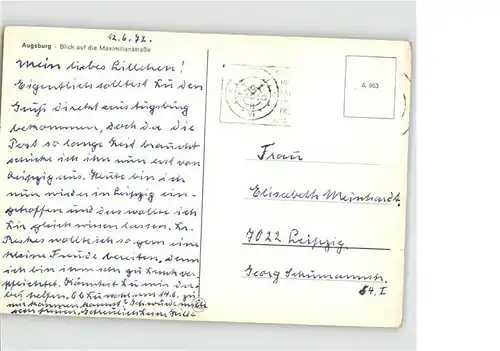 12.6.72.
Augsburg - Blick auf die Maximilianstraße
Mein liebes Lillchen!
Eigentlich solltest Du den
Gruß direkt aus Augsburg
bekommen, doch da die
Post so lange Zeit braucht
schicke ich ihn nun erst von
Leipzig aus. Heute bin ich
nun wieder in Leipzig ein-
getroffen und das wollte ich
Dir gleich wissen lassen.
wollte ich so gern eine
kleine Freude bereiten, denn
ich bin ihm sehr zu Dank ver-
pflichtet. Könntest Du mir da-
bei helfen, Ob Du wohl am 14.6. zu
mir kommen kannst? Ich würde mich
sehr freuen.
A 953
Frau
Elisabeth Meinhardt.
7022 Leipzig
Georg Schumannstr.
84. I